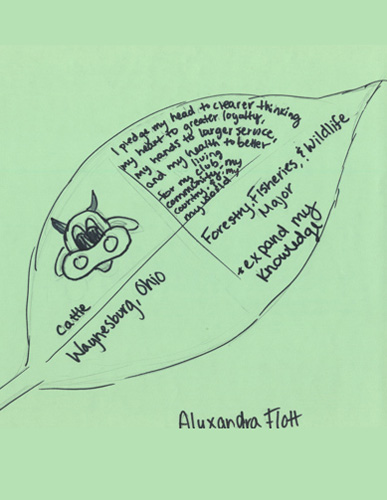 I pledge my head to clearer thinking
my heart to greater loyalty,
my hands to larger service,
and my health to better
living
for my club, my
community, my
country, &
my world
Forestry, Fisheries, & Wildlife
Major
+ expand my
knowledge
cattle
Waynesburg, Ohio
Aluxandra Flott